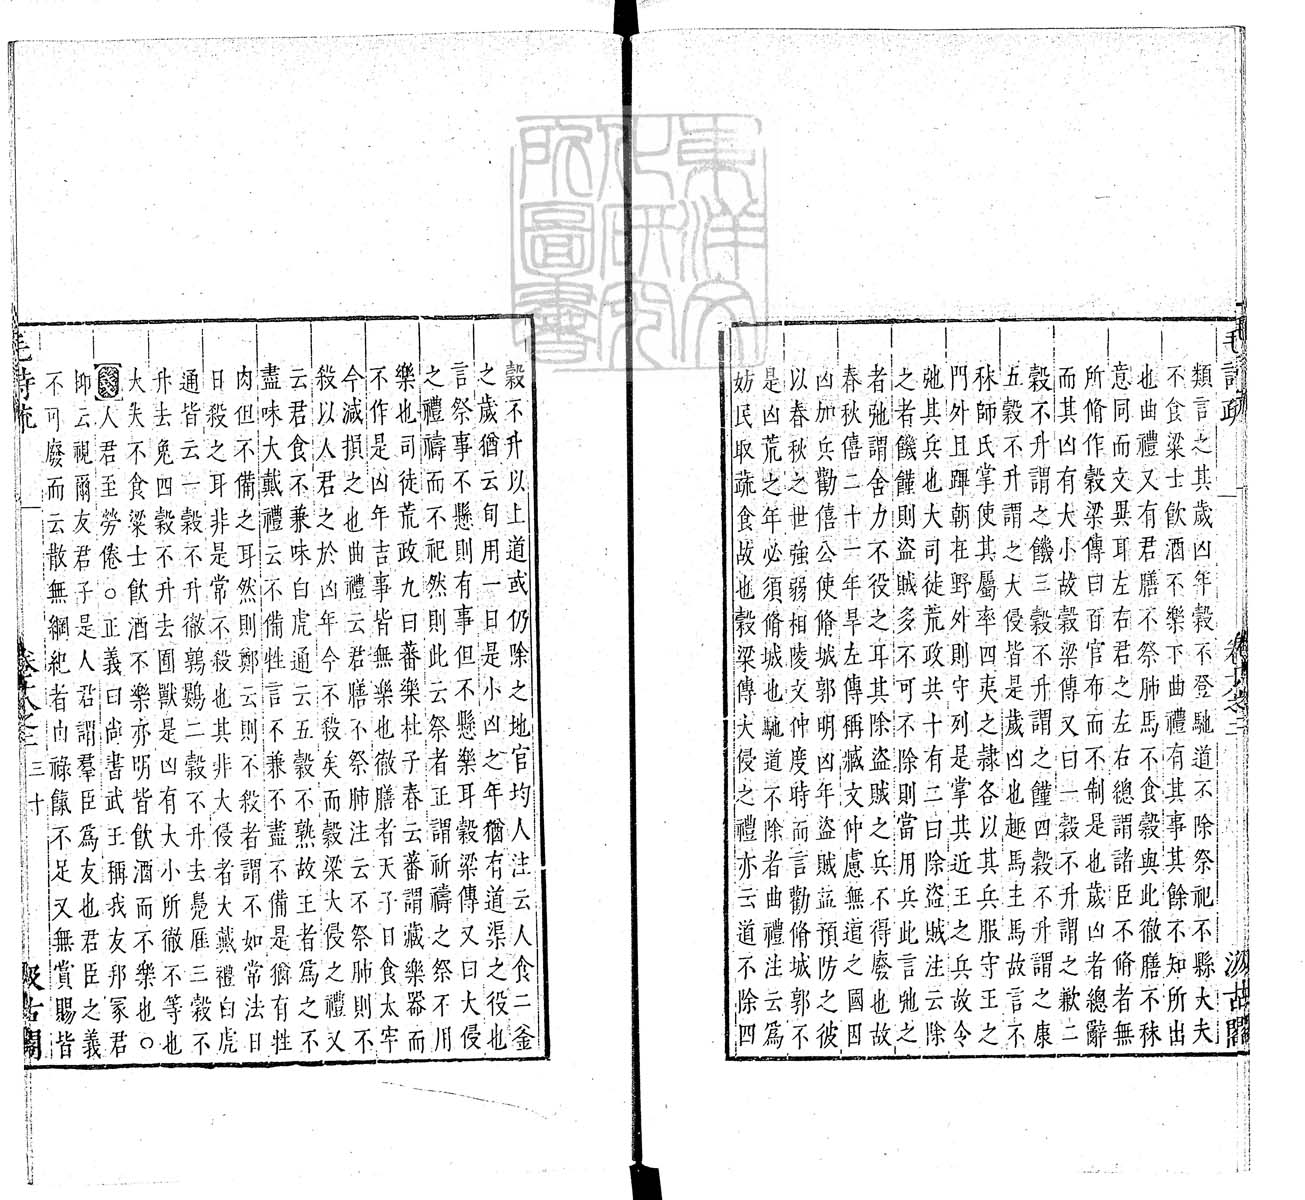 毛詩疏
卷十八之二
汲古閣
類言之其歲凶年穀不登馳道不除祭祀不縣大夫
不食粱士飲酒不樂下曲禮有其事其餘不知所出
也曲禮又有君膳不祭肺馬不食穀與此徹膳不秣
意同而文異耳左右君之左右總謂諸臣不脩者無
所脩作穀梁傳曰百官布而不制是也歲凶者總辭
而其凶有大小故穀梁傳又曰一穀不升謂之歉二
穀不升謂之饑三穀不升謂之饉四穀不升謂之康
五穀不升謂之大侵皆是歲凶也趣馬主馬故言不
秣師氏掌使其屬率四夷之隸各以其兵服守王之
門外且蹕朝在野外則守列是掌其近王之兵故令
弛其兵也大司徒荒政共十有二曰除盜賊注云除
之者饑饉則盜賊多不可不除則當用兵此言弛之
者弛謂舍力不役之耳其除盜賊之兵不得廢也故
春秋僖二十一年旱左傳稱臧文仲慮無道之國因
凶加兵勸僖公使脩城郭明凶年盜賊益預防之彼
以春秋之世強弱相陵文仲度時而言勸脩城郭不
是凶荒之年必須脩城也馳道不除者曲禮注云爲
妨民取蔬食故也穀梁傳大侵之禮亦云道不除四
穀不升以上道或仍除之地官均人注云人食二釜
之歲猶云旬用一日是小凶之年猶有道渠之役也
言祭事不懸則有事但不懸樂耳穀梁傳又曰大侵
之禮禱而不祀然則此云祭者正謂祈禱之祭不用
樂也司徒荒政九曰蕃樂杜子春云蕃謂藏樂器而
不作是凶年吉事皆無樂也徹膳者天子日食太牢
今減損之也曲禮云君膳不祭肺注云不祭肺則不
殺以人君之於凶年今不殺矣而穀梁大侵之禮又
云君食不兼味白虎通云五穀不熟故王者爲之不
盡味大戴禮云不備牲言不兼不盡不備是猶有牲
肉但不備之耳然則鄭云則不殺者謂不如常法日
日殺之耳非是常不殺也其非大侵者大戴禮白虎
通皆云一穀不升徹鶉鷃二穀不升去鳧雁三穀不
升去兔四穀不升去囿獸是凶有大小所徹不等也
大夫不食粱士飲酒不樂亦明皆飲酒而不樂也○
人君至勞倦○正義曰尚書武王稱我友邦冢君
抑云視爾友君子是人君謂羣臣爲友也君臣之義
不可廢而云散無綱紀者由祿餼不足又無賞賜皆
毛詩疏
卷十八之二
三十
汲古閣
東洋文化研究所圖書